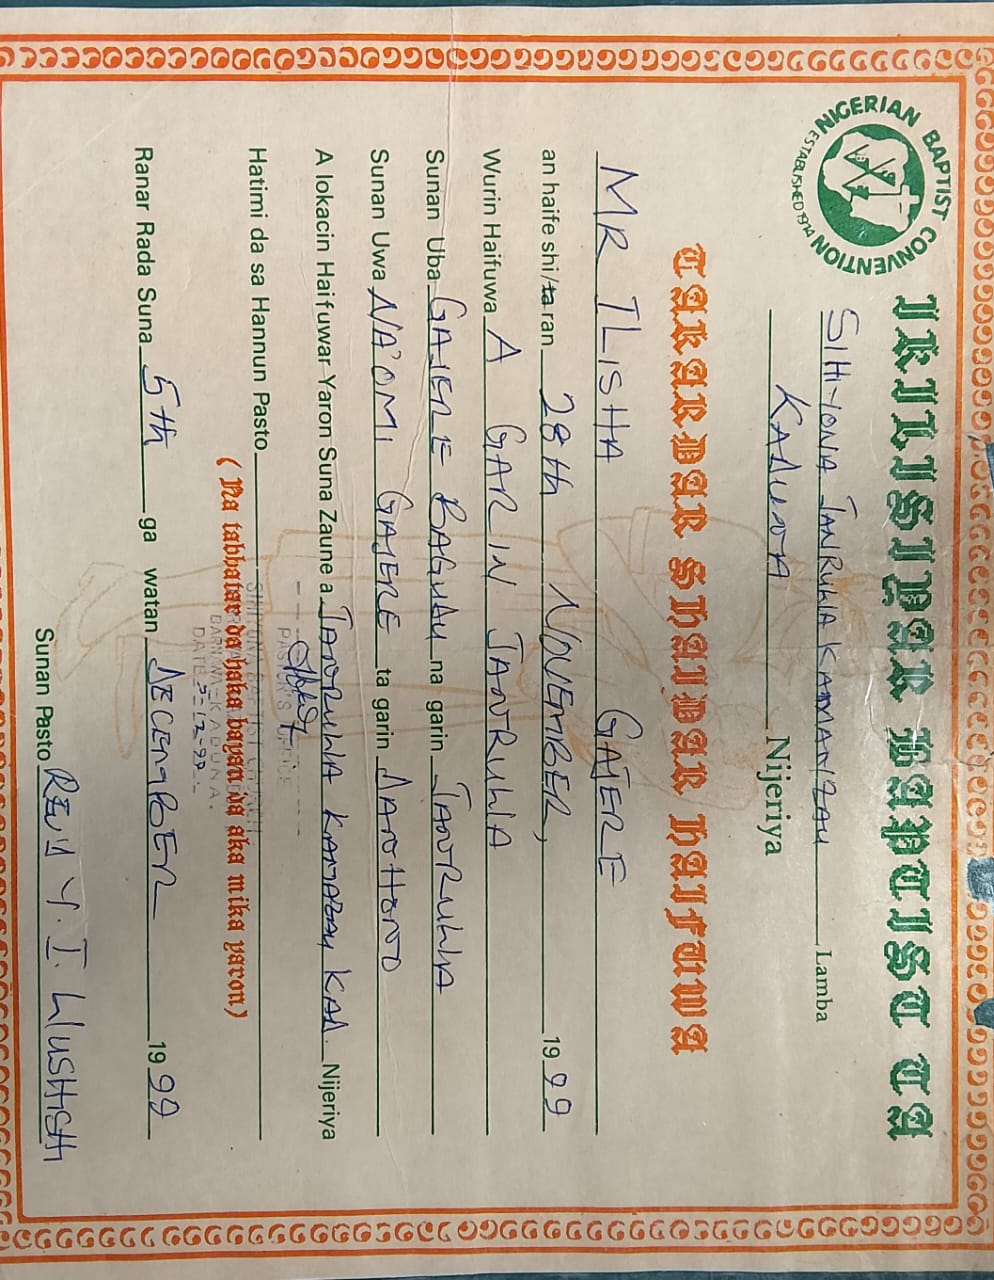 NIGERIAN BAPTIST CONVENTION
ESTABLISHED 1914
IKILISIYAR BAPTIST TA
SIHIONA JANRUWA KAMAZAU Lamba
KADUNA Nijeriya
TAKARDAR SHAIDAR HAIFUWA
MR ILISHA GAJERE
an haife shi/ta ran 28th NOVEMBER, 1999
Wurin Haifuwa A GARIN JANRUWA
Sunan Uba GAJERE BAGUDU na garin JANRUWA
Sunan Uwa NA'OMI GAJERE ta garin
A lokacin Haifuwar Yaron Suna Zaune a JANRUWA KAMAZAU KAD. Nijeriya
Hatimi da sa Hannun Pasto
PASTOR'S OFFICE
SIHIYONA BAPTIST CHURCH
KADUNA.
DATE 5-12-99
(Na tabbatar da haka bayan da aka mika yaron)
Ranar Rada Suna 5th ga watan DECEMBER 1999
Sunan Pasto REV'D Y. I. WUSHISHI